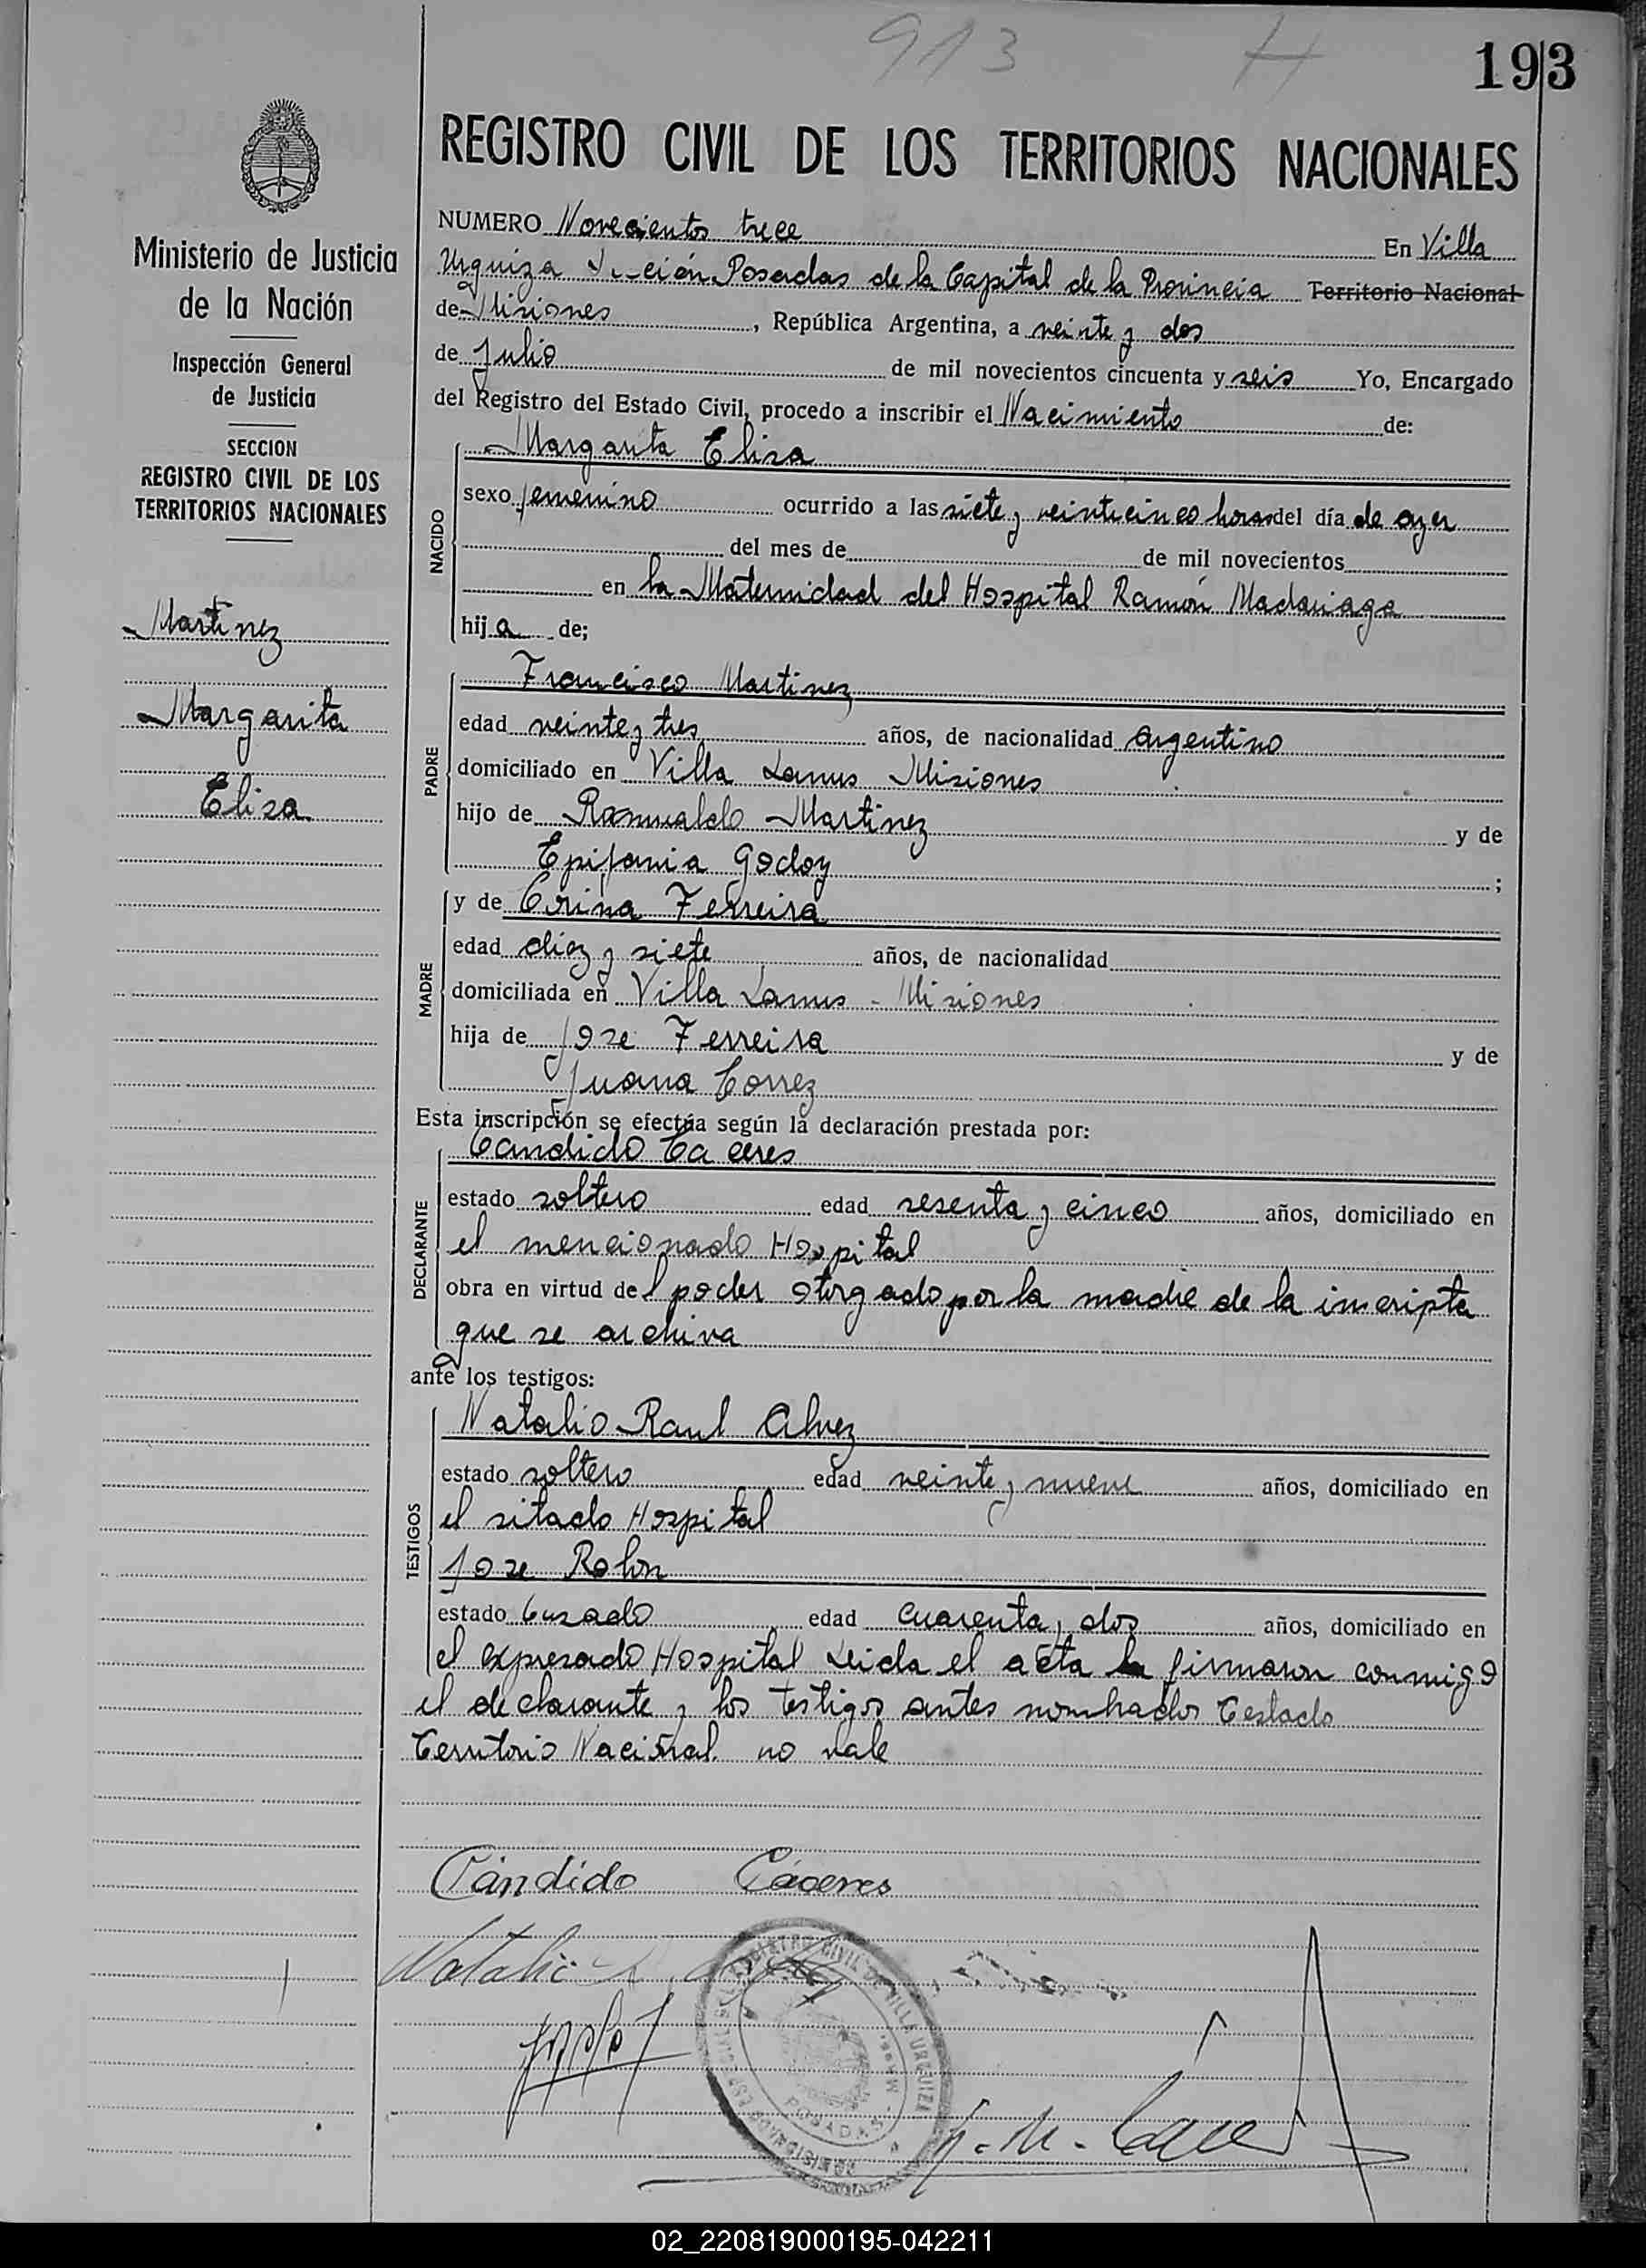 913 H
193
REGISTRO CIVIL DE LOS TERRITORIOS NACIONALES
Ministerio de Justicia
de la Nación
Inspección General
de Justicia
SECCION
REGISTRO CIVIL DE LOS
TERRITORIOS NACIONALES
Martinez
Margarita
Eliza
NUMERO Novecientos trece En Villa
Urquiza Posadas de la Capital de la Provincia Territorio Nacional
de Misiones, República Argentina, a veinte y dos
de Julio de mil novecientos cincuenta y seis Yo, Encargado
del Registro del Estado Civil, procedo a inscribir el Nacimiento de:
NACIDO
Margarita Eliza
sexo femenino ocurrido a las siete y veinticinco horas del día de ayer
del mes de de mil novecientos
en la Maternidad del Hospital Ramón Madariaga
hija de;
PADRE
Francisco Martinez
edad veinte y tres años, de nacionalidad argentino
domiciliado en Villa Lanus Misiones
hijo de Romualdo Martinez y de
Epifania Godoy ;
MADRE
y de Corina Ferreira
edad diez y siete años, de nacionalidad
domiciliada en Villa Lanus - Misiones
hija de Jose Ferreira y de
Juana Correz
Esta inscripción se efectúa según la declaración prestada por:
DECLARANTE
Candido Caceres
estado soltero edad sesenta y cinco años, domiciliado en
el mencionado Hospital
obra en virtud del poder otorgado por la madre de la inscripta
que se archiva
ante los testigos:
TESTIGOS
Natalio Raul Alvez
estado soltero edad veinte y nueve años, domiciliado en
el sitado Hospital
Jose Rolon
estado Casado edad cuarenta y dos años, domiciliado en
el expresado Hospital Leida el acta la firmaron conmigo
el declarante y los testigos antes nombrados Testado
Territorio Nacional no vale
Cándido Cáceres
Natalio
REGISTRO CIVIL DE VILLA URQUIZA
POSADAS
02_220819000195-042211